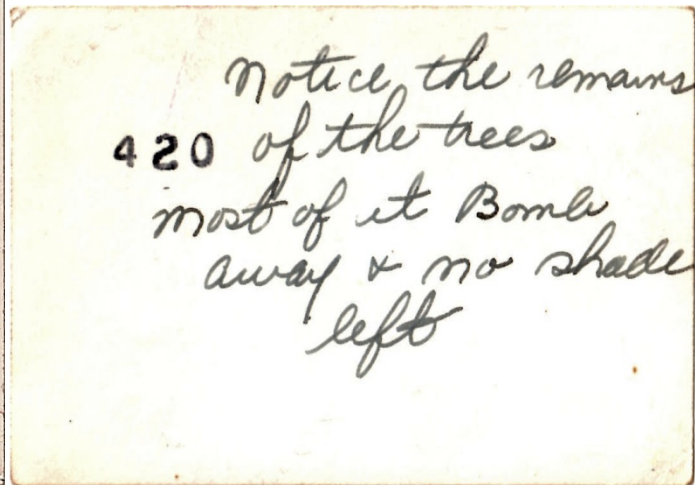 Notice the remains
420 of the trees
most of it Bomb
away & no shade
left